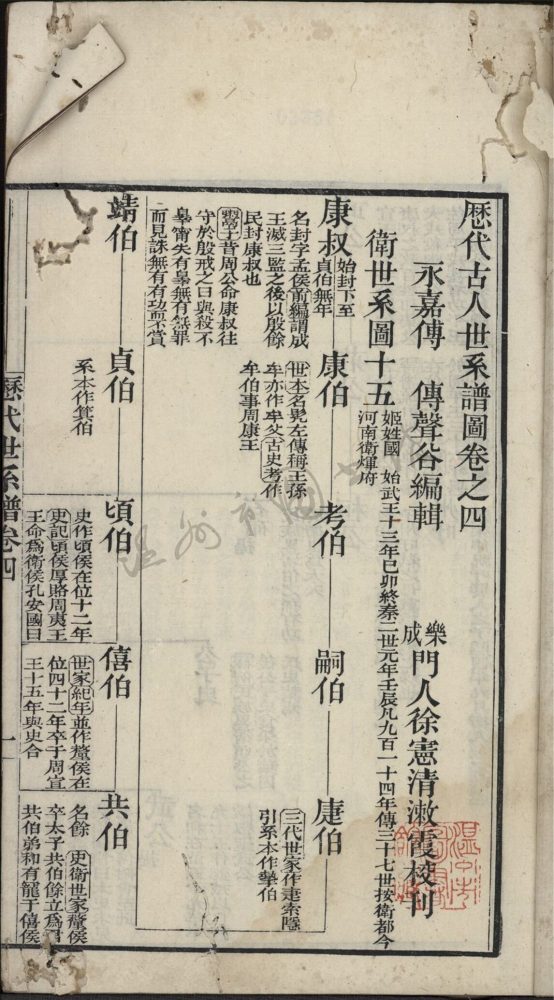 歷代古人世系譜圖卷之四
永嘉傅 傅聲谷編輯
樂成門人徐憲清漱霞校刊
衛世系圖十五
姬姓國 始武王十三年巳卯終秦二世元年壬辰凡九百一十四年傳三十七世按衛都今
河南衛輝府
康叔
始封下至
貞伯無年
名封字孟侯前編謂成
王滅三監之後以殷餘
民封康叔也
鬻子昔周公命康叔往
守於殷戒之曰與殺不
辜寜失有辠無有無罪
而見誅無有有功而不賞
康伯
世本名髡左傳稱王孫
牟亦作牟父古史考作
牟伯事周康王
考伯
嗣伯
疌伯
三代世家作疌索隱
引系本作摯伯
靖伯
貞伯
系本作箕伯
頃伯
史作頃侯在位十二年
史記頃侯厚賂周夷王
王命爲衛侯孔安國曰
僖伯
世家紀年並作釐侯在
位四十二年卒于周宣
王十五年與史合
共伯
名餘 史衛世家釐侯
卒太子共伯餘立爲君
共伯弟和有寵于僖侯
歷代世系譜卷四
一